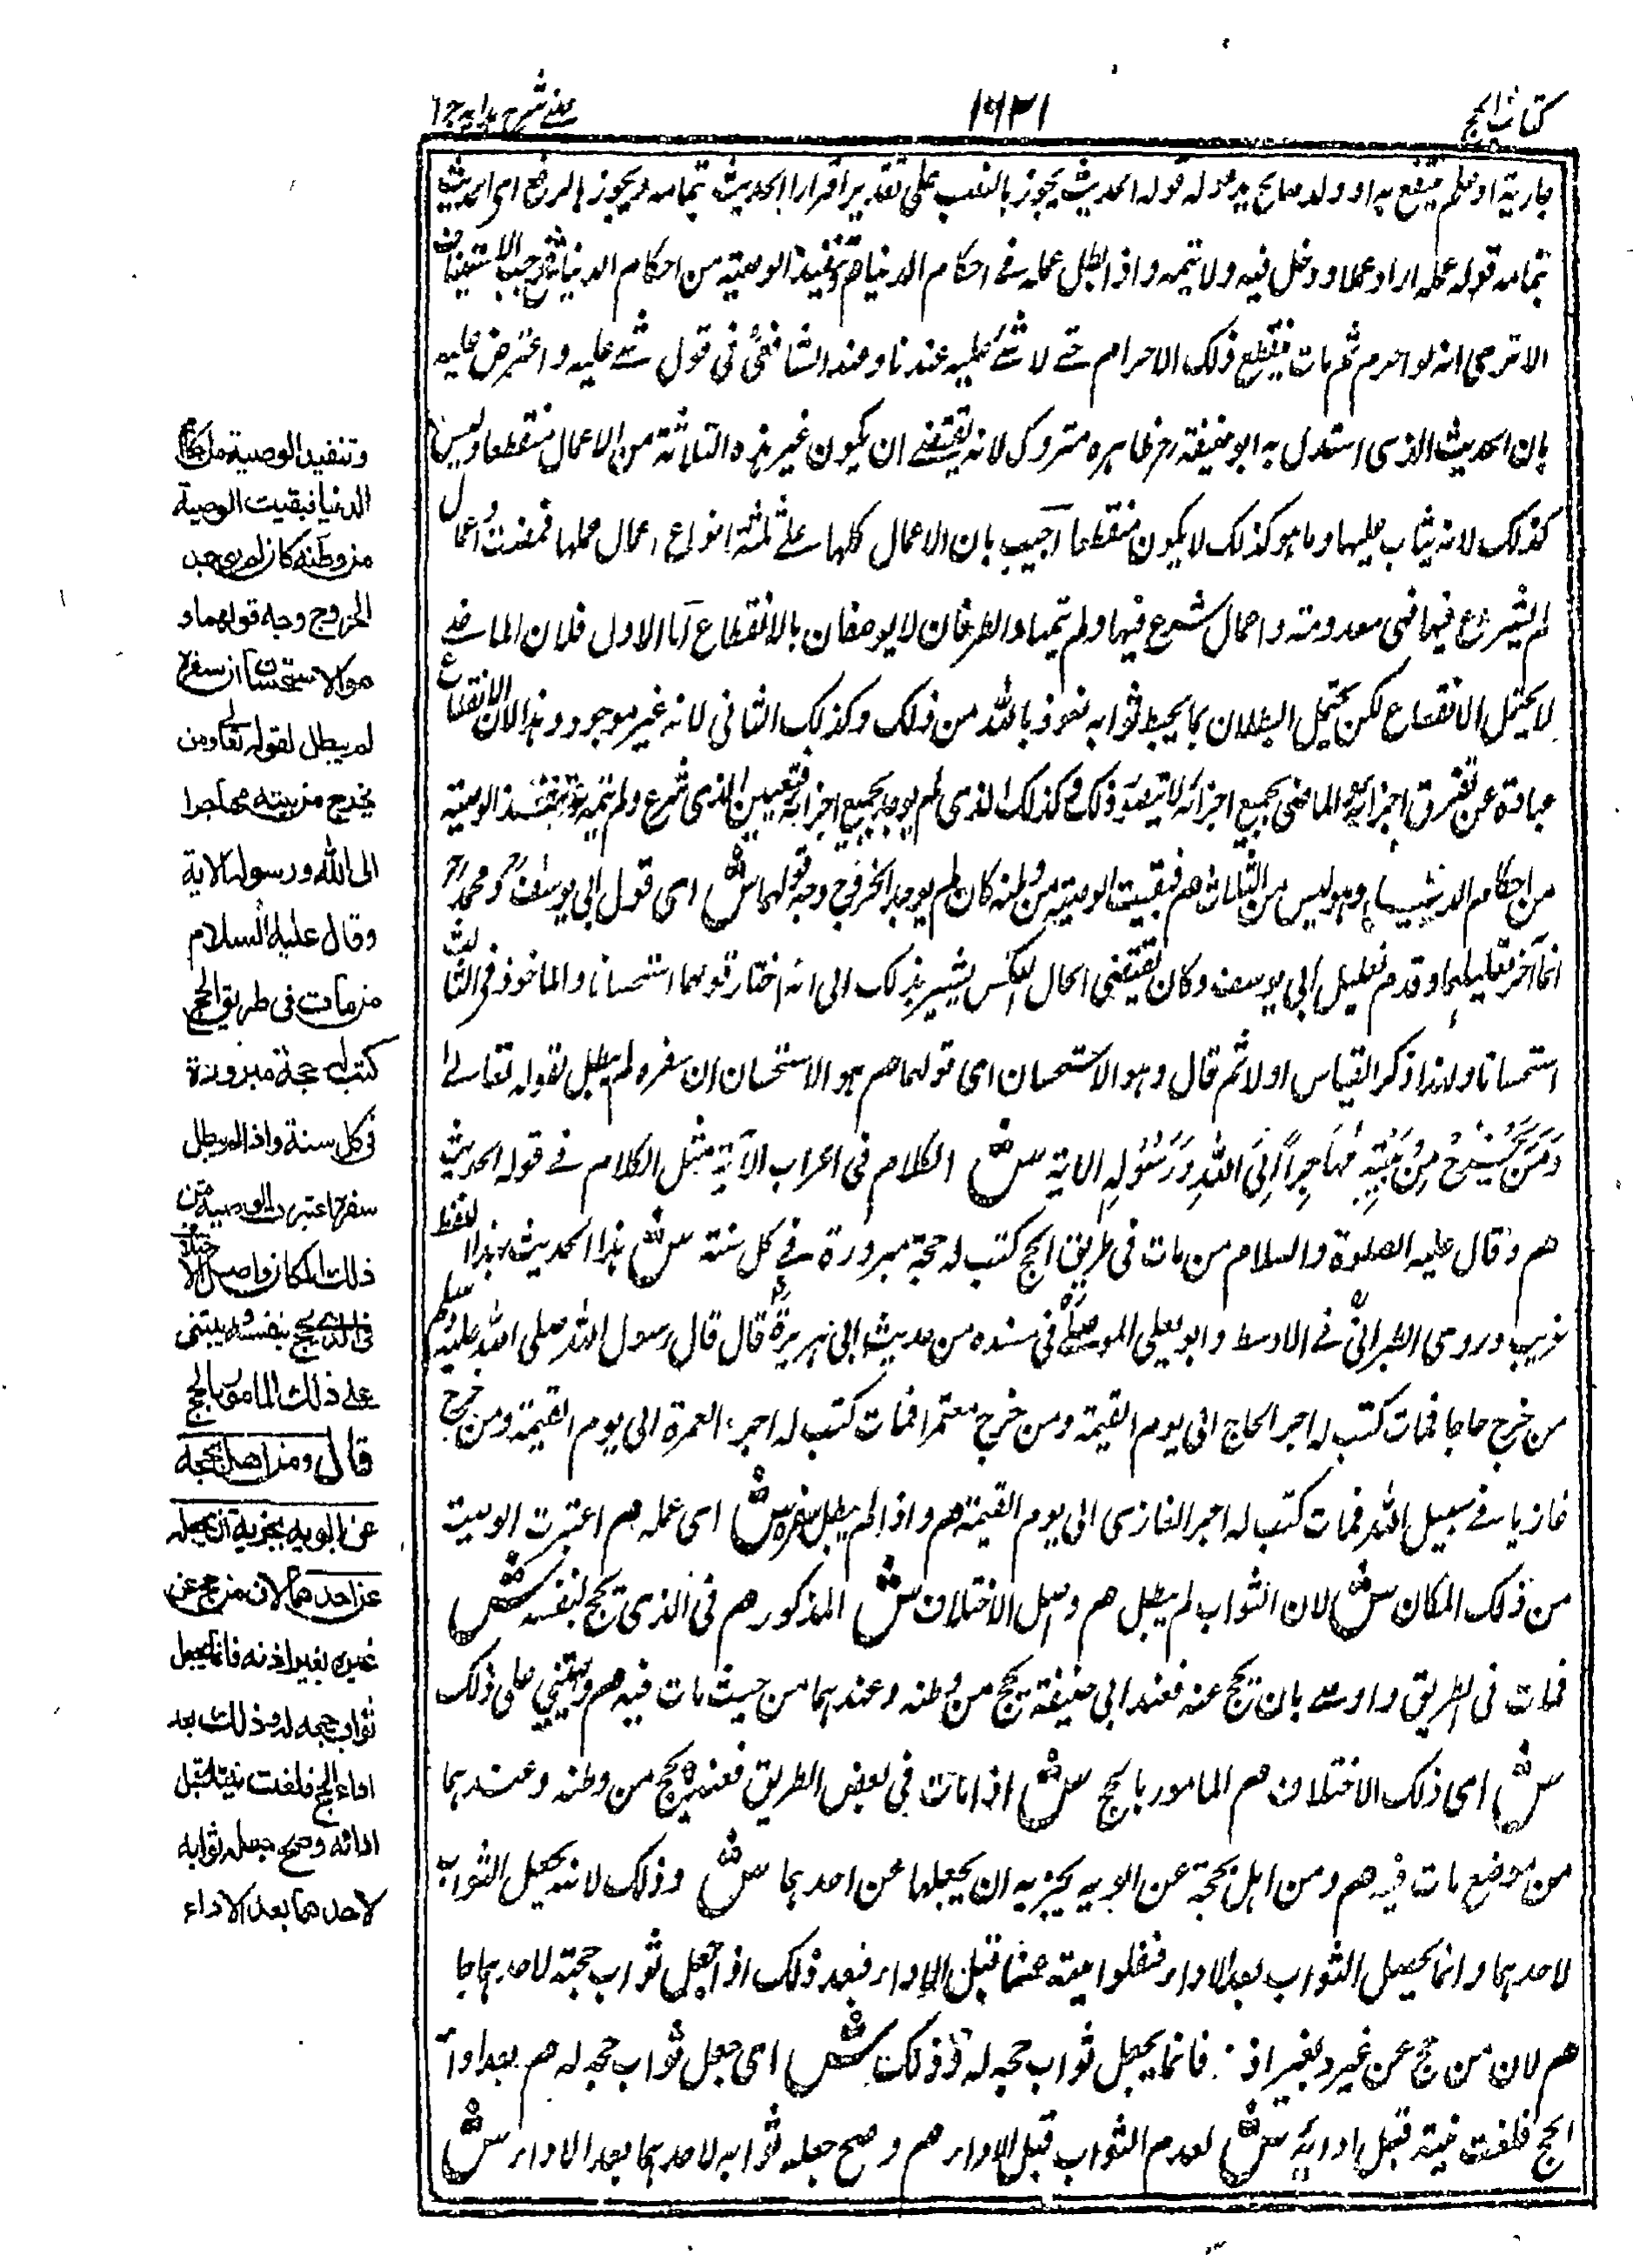 كتاب الحج
١٦٣١
عيني شرح هدايه ج ١
جارية او علم ينتفع به او ولد صالح يدعو له قوله الحديث يجوز بالنصب على تقدير اقرا الحديث بتمامه ويجوز بالرفع اى الحديث
بتمامه قوله عمله اراد عملا ودخل فيه ولا يتمه واذا بطل عمله في احكام الدنيا م وتنفيذ الوصية من احكام الدنيا ش فوجب الاستيناف
الا ترى انه لو احرم ثم مات ينقطع ذلك الاحرام حتى لا شئ عليه عندنا وعند الشافعي في قول شئ عليه واعترض عليه
بان الحديث الذى استدل به ابو حنيفة رح ظاهره متروك لانه يقتضي ان يكون غير هذه الثلاثة من الاعمال منقطعا وليس
كذلك لانه يثاب عليها وما هو كذلك لا يكون منقطعا اجيب بان الاعمال كلها على ثلثة انواع اعمال عملها فمضت واعمال
لم يشرع فيها فهى معدومة واعمال شرع فيها ولم يتمها والطرفان لا يوصفان بالانقطاع اما الاول فلان الماضي
لا يحتمل الانقطاع لكن يحتمل البطلان بما يحبط ثوابه نعوذ بالله من ذلك وكذلك الثاني لانه غير موجود وهذا لان الانقطاع
عبادة عن تفرق اجزائه والماضى بجميع اجزائه لا يتصور ذلك وكذلك الذى لم يوجد بجميع اجزائه فتعين الذى شرع ولم يتمه وتنفيذ الوصية
من احكام الدنيا وهو ليس من الثلاث هم فبقيت الوصية من وطنه كان لم يوجد الخروج وجه قولهما ش اى قول ابي يوسف رح ومحمد رح
انما اخر تعليلهما وقدم تعليل ابي يوسف وكان يقتضى الحال العكس يشير بذلك الى انه اختار قولهما استحسانا والماخوذ فى الثالث
استحسانا ولهذا ذكر القياس اولا ثم قال وهو الاستحسان اى قولهما هم هو الاستحسان ان سفره لم يبطل لقوله تعالى
وَمَنْ يَخْرُجْ مِنْ بَيْتِهِ مُهَاجِراً اِلَى اللهِ وَرَسُوْلِهِ الاية ش الكلام فى اعراب الآية مثل الكلام في قوله الحديث
هم وقال عليه الصلوة والسلام من مات فى طريق الحج كتب له حجة مبرورة في كل سنة ش هذا الحديث بهذا اللفظ
غريب وروى الطبراني في الاوسط وابو يعلى الموصلي فى مسنده من حديث ابى هريرة قال قال رسول الله صلى الله عليه وسلم
من خرج حاجا فمات كتب له اجر الحاج الى يوم القيمة ومن خرج معتمرا فمات كتب له اجر العمرة الى يوم القيمة ومن خرج
غازيا في سبيل الله فمات كتب له اجر الغازى الى يوم القيمة هم واذا لم يبطل سفره ش اى عمله هم اعتبرت الوصية
من ذلك المكان ش لان الثواب لم يبطل هم واصل الاختلاف ش المذكور هم فى الذى يحج لنفسه ش
فمات فى الطريق واوصى بان يحج عنه فعند ابى حنيفة يحج من وطنه وعندهما من حيث مات فيه هم ويبتني على ذلك
ش اى ذلك الاختلاف هم المامور بالحج ش اذا مات فى بعض الطريق فعنده يحج من وطنه وعندهما
من موضع مات فيه هم ومن اهل بحجة عن ابويه يجزيه ان يجعلها عن احدهما ش وذلك لانه يجعل الثواب
لاحدهما وانما يحصل الثواب بعد الاداء فيلغوا نيته عنهما قبل الاداء فبعد ذلك اذا جعل ثواب حجته لاحدهما جاز
هم لان من حج عن غيره بغير اذنه فانما يجعل ثواب حجه له وذلك ش اى جعل ثواب حجه له هم بعد اداء
الحج فلغت نيته قبل ادائه ش لعدم الثواب قبل الاداء هم وصح جعله ثوابه لاحدهما بعد الاداء ش
وتنفيذ الوصية من احكام
الدنيا فبقيت الوصية
من وطنه كان لم يوجد
الخروج وجه قولهما و
هو الاستحسان ان سفره
لم يبطل لقوله تعالى ومن
يخرج من بيته مهاجرا
الى الله ورسوله الاية
وقال عليه السلام
من مات فى طريق الحج
كتب له حجة مبرورة
فى كل سنة واذا لم يبطل
سفره اعتبرت الوصية من
ذلك المكان واصل الاختلاف
فى الذى يحج بنفسه ويبتنى
على ذلك المامور بالحج
قال ومن اهل بحجة
عن ابويه يجزيه ان يجعله
عن احدهما لان من حج عن
غيره بغير اذنه فانما يجعل
ثواب حجه له وذلك بعد
اداء الحج فلغت نيته قبل
ادائه وصح جعله ثوابه
لاحدهما بعد الاداء